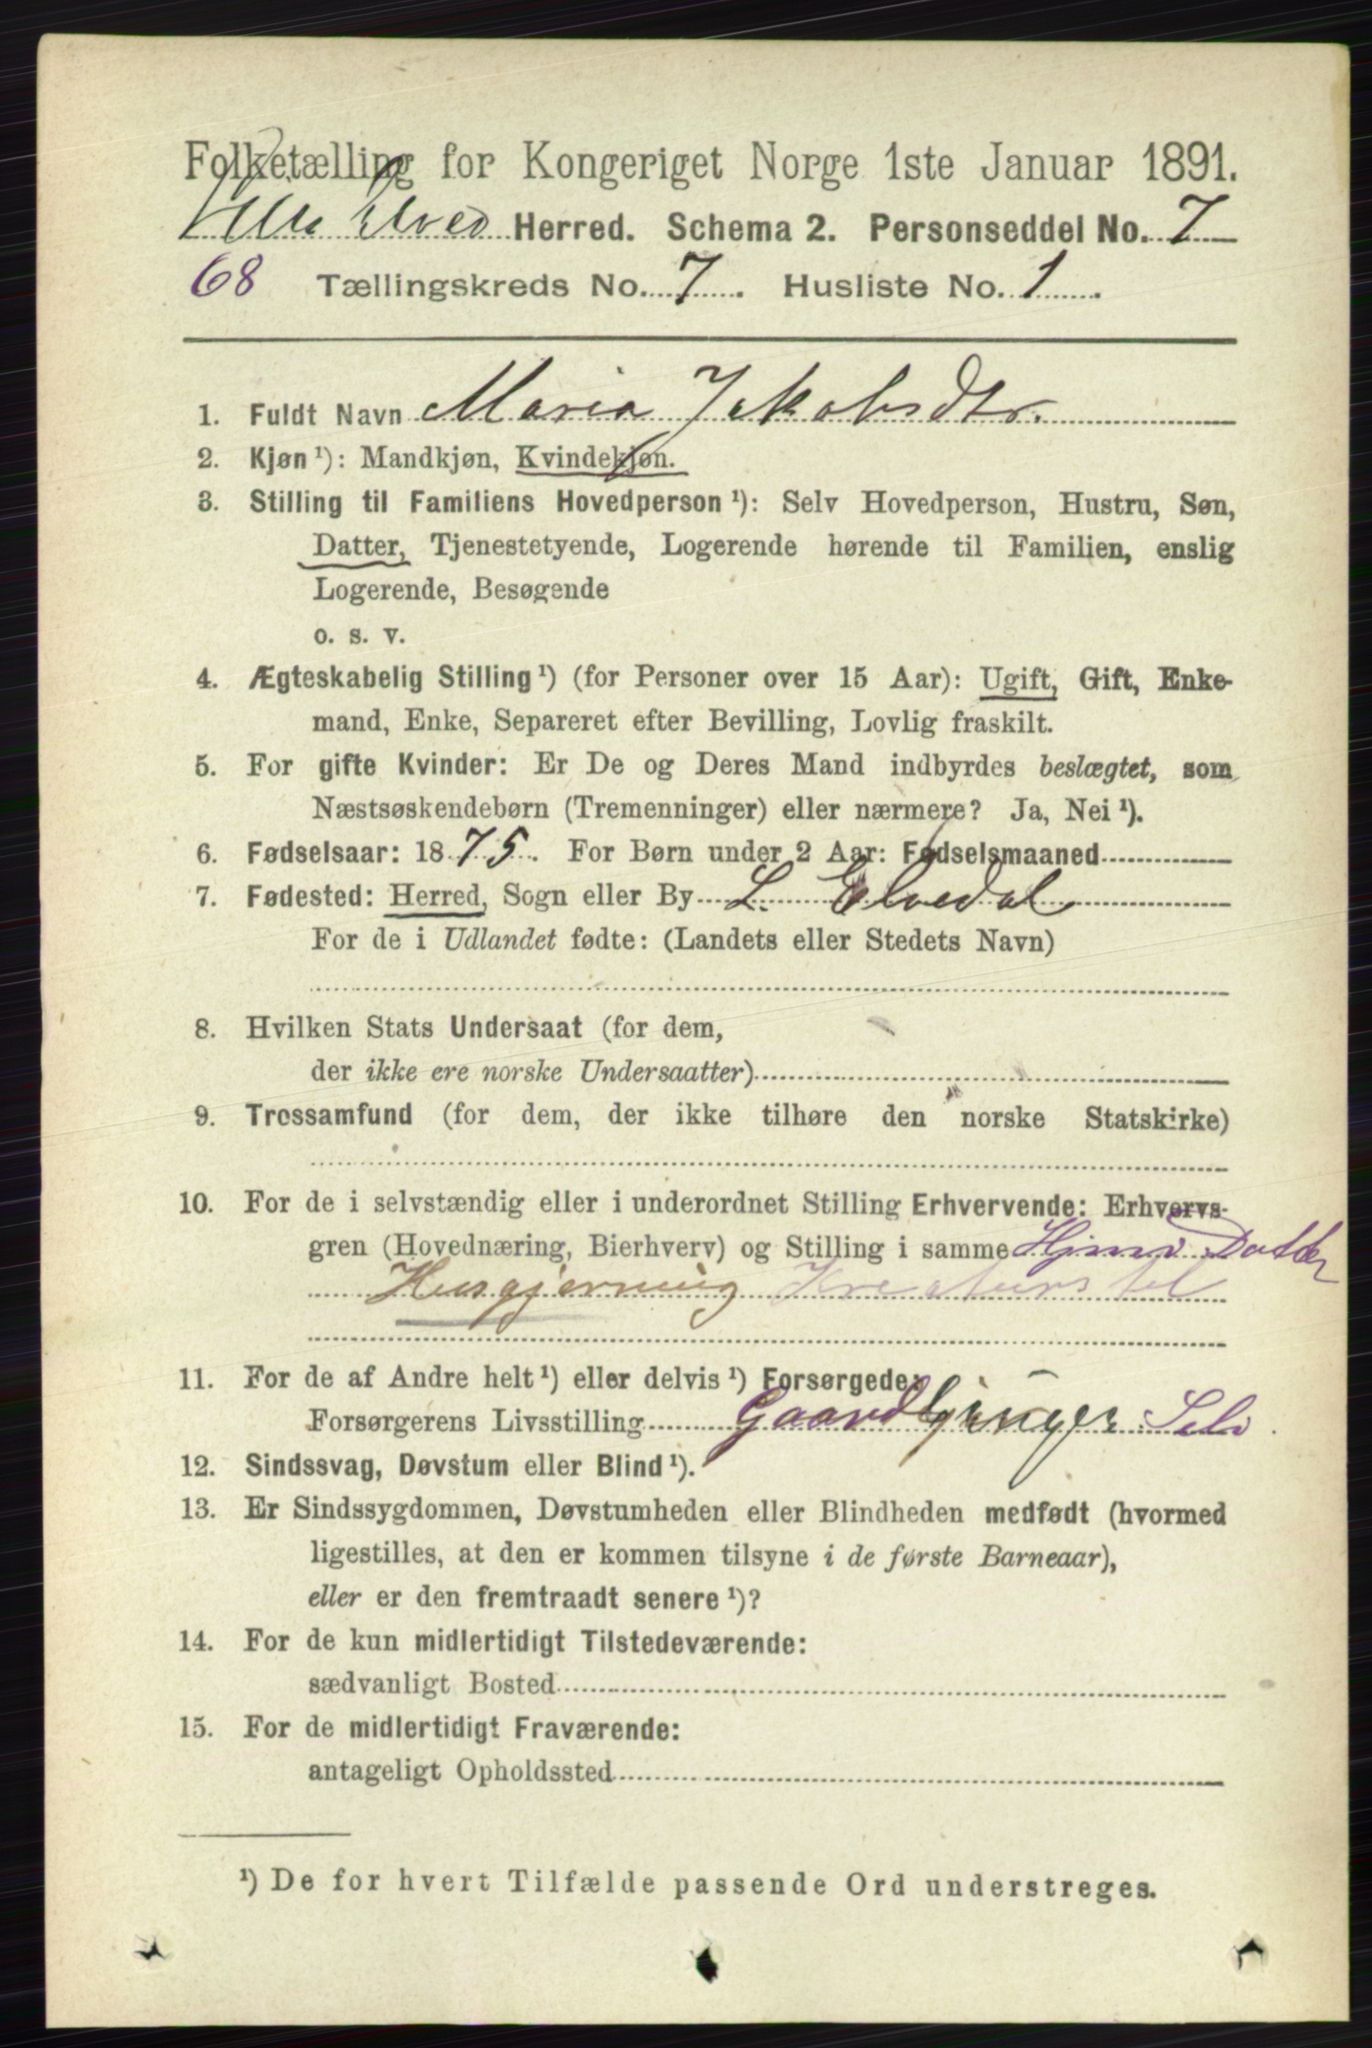 Folketælling for Kongeriget Norge 1ste Januar 1891.
Lille Elved Herred. Schema 2. Personseddel No. 7
68 Tællingskreds No. 7. Husliste No. 1.
1. Fuldt Navn Maria Jakobsdtr.
2. Kjøn ¹): Mandkjøn, Kvindekjøn.
3. Stilling til Familiens Hovedperson ¹): Selv Hovedperson, Hustru, Søn,
Datter, Tjenestetyende, Logerende hørende til Familien, enslig
Logerende, Besøgende
o. s. v.
4. Ægteskabelig Stilling ¹) (for Personer over 15 Aar): Ugift, Gift, Enke-
mand, Enke, Separeret efter Bevilling, Lovlig fraskilt.
5. For gifte Kvinder: Er De og Deres Mand indbyrdes beslægtet, som
Næstsøskendebørn (Tremenninger) eller nærmere? Ja, Nei ¹).
6. Fødselsaar: 1875. For Børn under 2 Aar: Fødselsmaaned
7. Fødested: Herred, Sogn eller By L. Elvedal
For de i Udlandet fødte: (Landets eller Stedets Navn)
8. Hvilken Stats Undersaat (for dem,
der ikke ere norske Undersaatter)
9. Trossamfund (for dem, der ikke tilhøre den norske Statskirke)
10. For de i selvstændig eller i underordnet Stilling Erhvervende: Erhvervs-
gren (Hovednæring, Bierhverv) og Stilling i samme Hjmv Datter
Husgjerning Kreaturstel
11. For de af Andre helt ¹) eller delvis ¹) Forsørgede:
Forsørgerens Livsstilling Gaardbruger Selv
12. Sindssvag, Døvstum eller Blind ¹).
13. Er Sindssygdommen, Døvstumheden eller Blindheden medfødt (hvormed
ligestilles, at den er kommen tilsyne i de første Barneaar),
eller er den fremtraadt senere ¹)?
14. For de kun midlertidigt Tilstedeværende:
sædvanligt Bosted
15. For de midlertidigt Fraværende:
antageligt Opholdssted
¹) De for hvert Tilfælde passende Ord understreges.